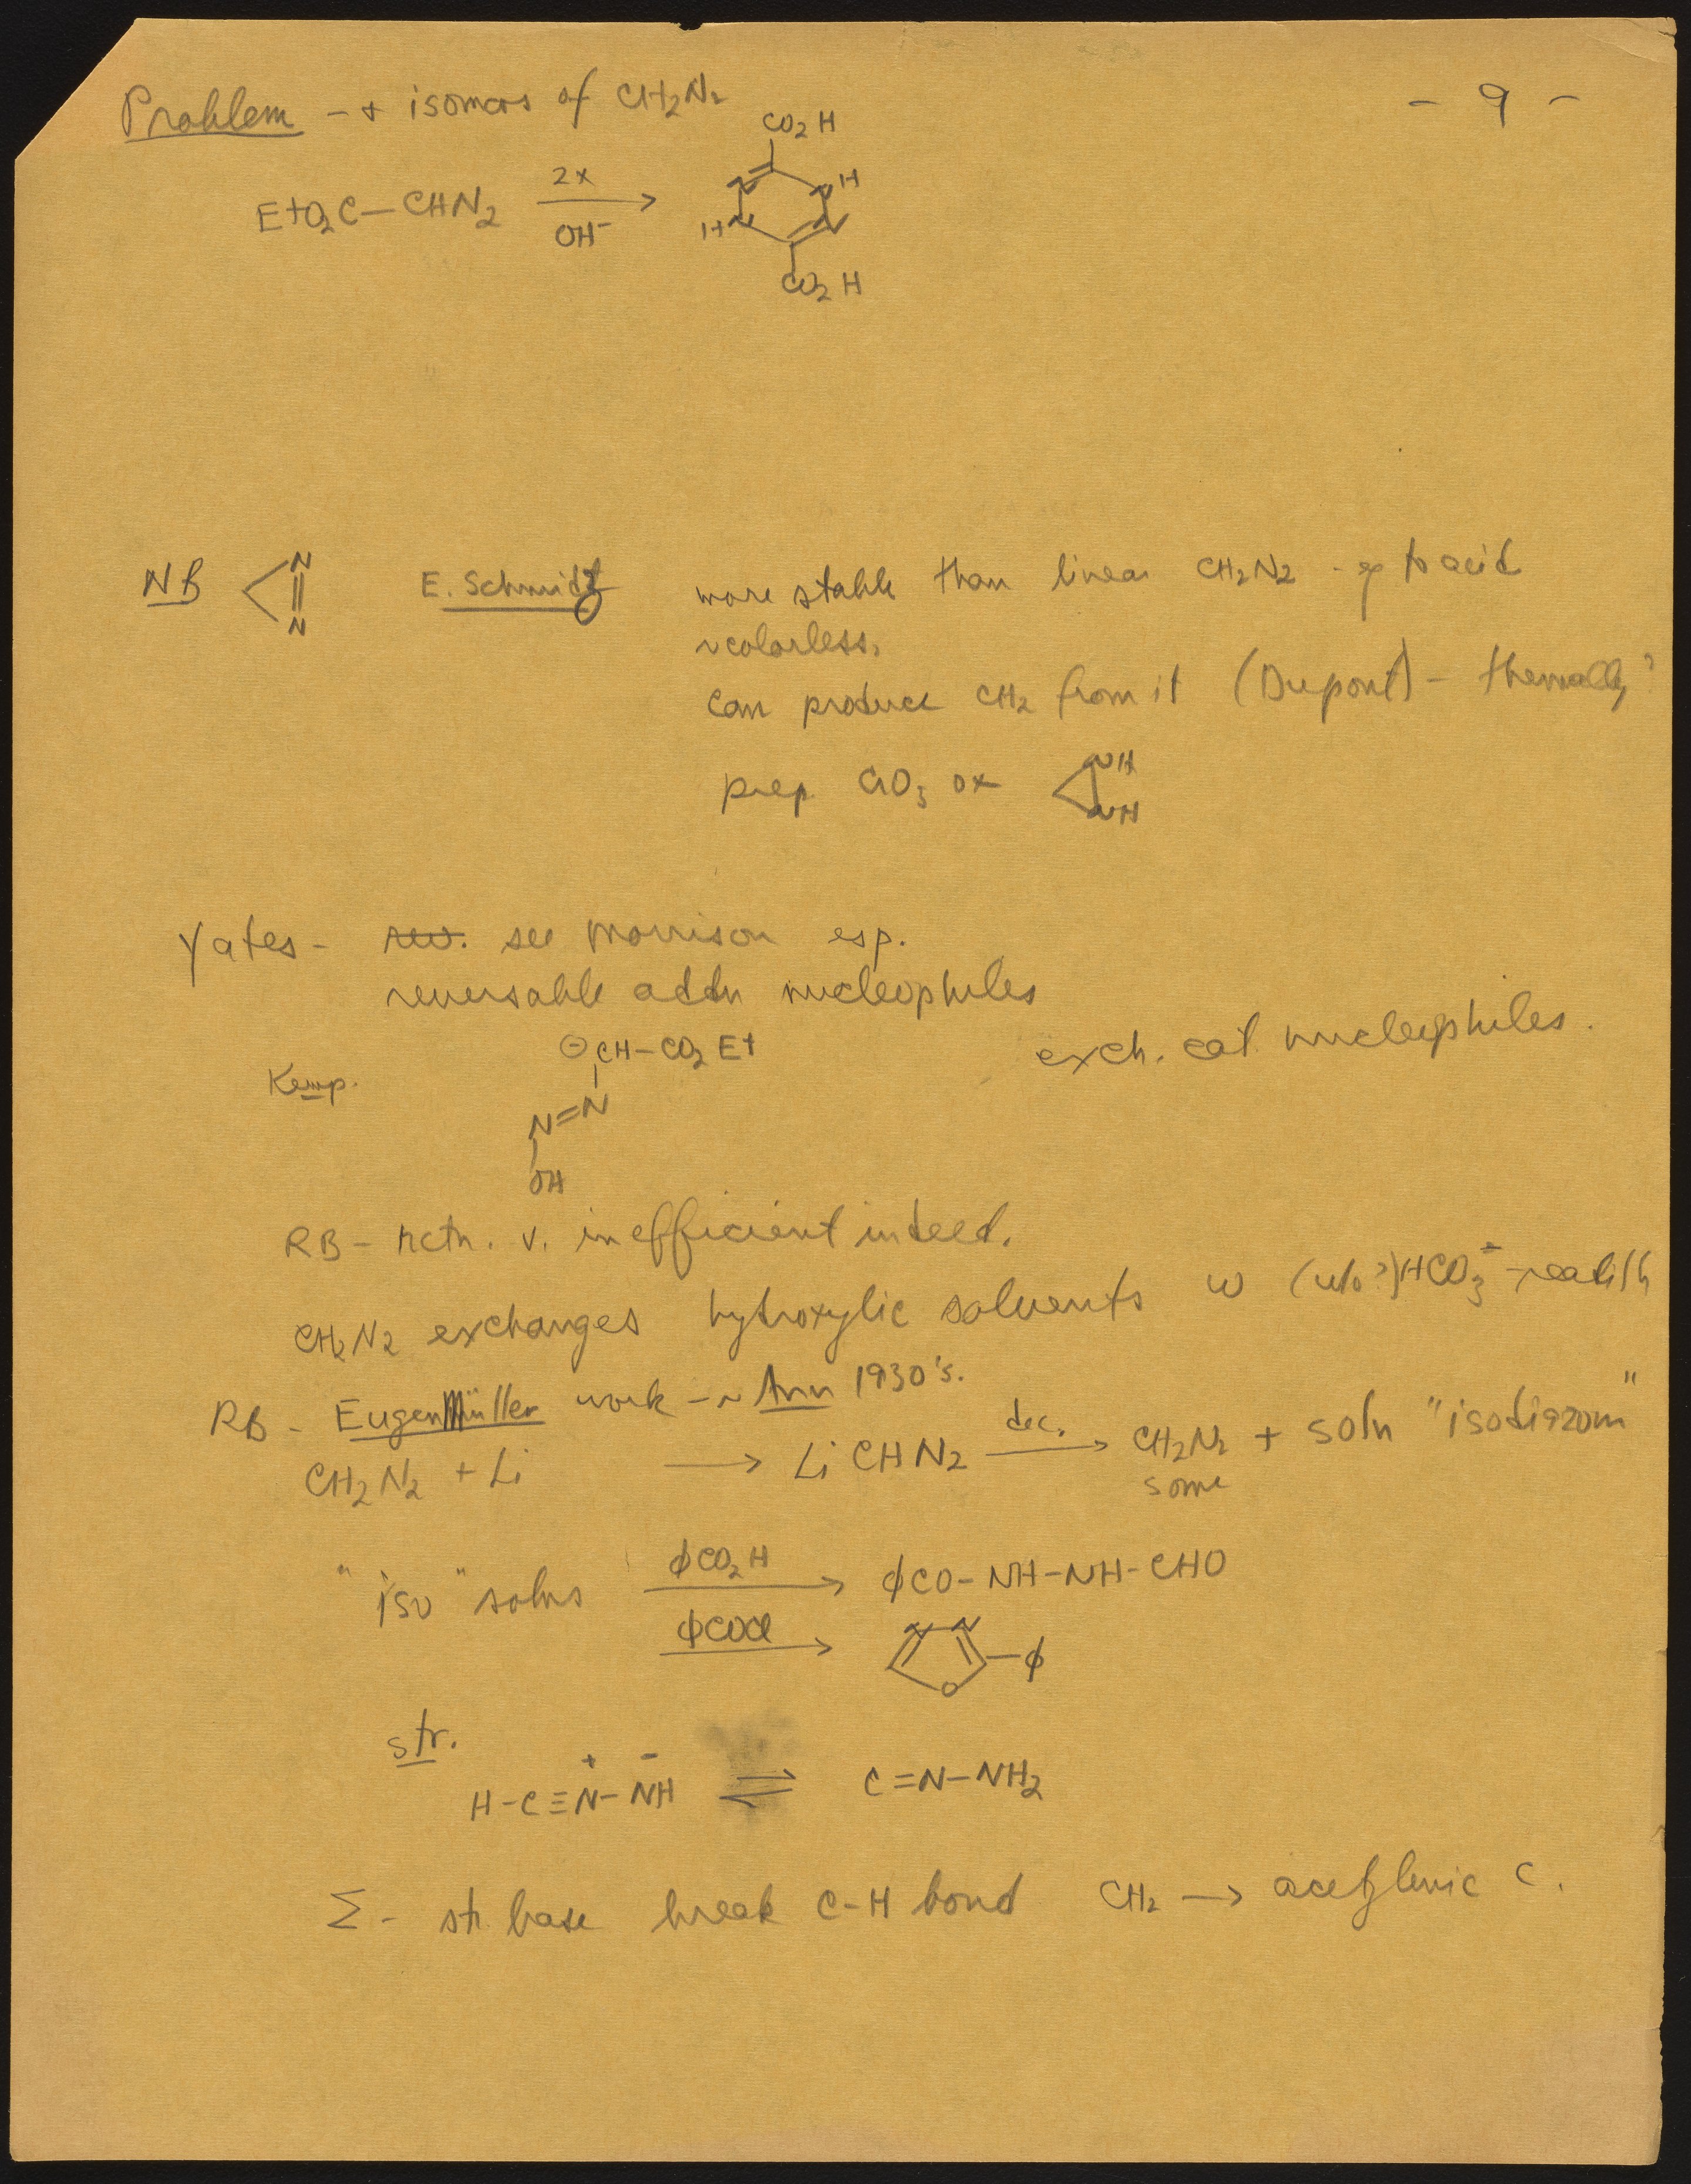 Problem → isomers of CH2N2
- 9 -
EtO2C—CHN2 2x OH⁻ →
CO2H
N N H
H N N
CO2H
NB N N E. Schmidt more stable than linear CH2N2 - to acid
~colorless.
Can produce CH2 from it (Dupont) - thermally?
prep CrO3 ox NH NH
Yates - rev. see Morrison esp.
reversable addn nucleophiles
exch. cat. nucleophiles.
Kemp. ⊖CH-CO2Et
N=N
OH
RB - rctn. v. inefficient indeed.
CH2N2 exchanges hydroxylic solvents w (w/o?) HCO3⁻
RB - Eugen Müller work - ~ Ann 1930's.
CH2N2 + Li → LiCHN2 dec. → CH2N2 + soln "isodiazom"
some
"iso" solns ϕCO2H → ϕCO-NH-NH-CHO
ϕCOCl → N N O -ϕ
str.
H-C≡N⁺-NH⁻ ⇌ C≡N-NH2
Σ - str base break C-H bond CH2 → acetylenic C.